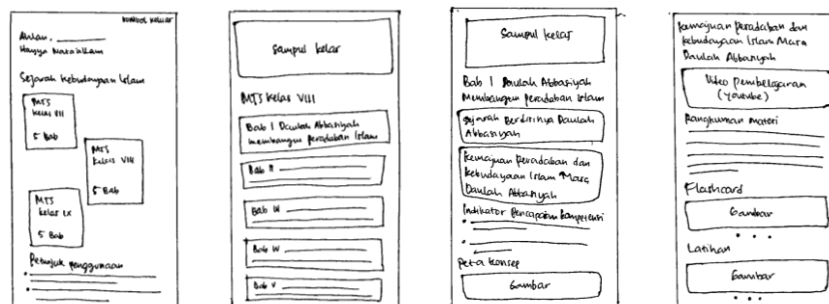 tombol keluar
Ahlan,
Hayya Nata'allam
Sejarah Kebudayaan Islam
MTS
kelas VII
5 Bab
MTS
kelas VIII
5 Bab
MTS
kelas IX
5 Bab
Petunjuk penggunaan
Sampul kelas
MTS kelas VIII
Bab I Daulah Abbasiyah
membangun peradaban Islam
Bab II
Bab IV
Bab V
Sampul kelas
Bab I Daulah Abbasiyah
Membangun peradaban Islam
Sejarah Berdirinya Daulah
Abbasiyah
Kemajuan Peradaban dan
Kebudayaan Islam Masa
Daulah Abbasiyah
Indikator Pencapaian kompetensi
Peta konsep
Gambar
Kemajuan Peradaban dan
kebudayaan Islam Masa
Daulah Abbasiyah
Video Pembelajaran
(Youtube)
Rangkuman materi
Flashcard
Gambar
Latihan
Gambar